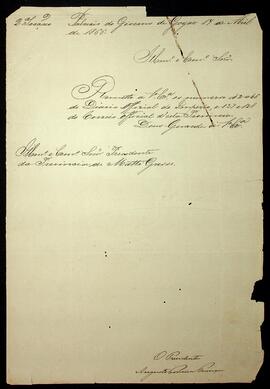 2ª Secção Palacio do Governo de Goyaz 18 de Abril
de 1866.
Illmo. e Exmo. Snr.
Remetto a V. Exª. os numeros
do Diario Official do Imperio, e 127 e 128
do Correio official desta Provincia.
Deos Guarde a V. Exª.
Illmo. e Exmo. Snr. Presidente
da Provincia de Matto Grosso.
O Presidente
Augusto França